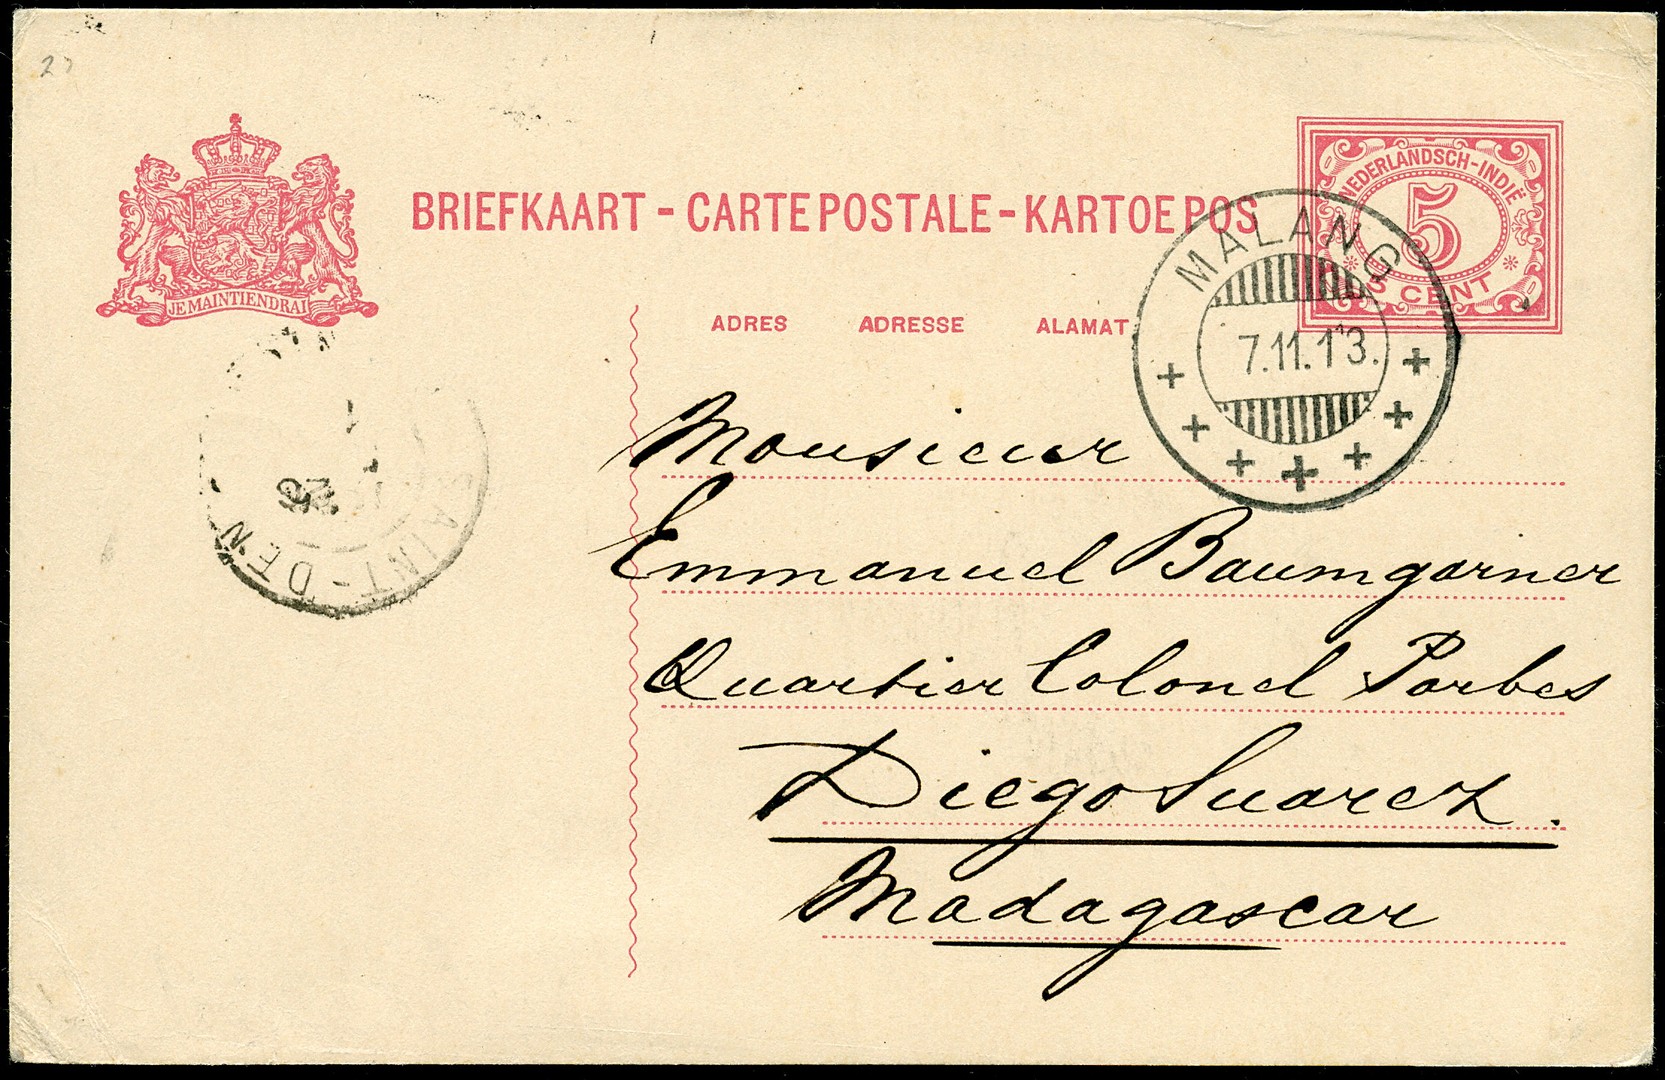 27
BRIEFKAART - CARTE POSTALE - KARTOE POS
NEDERLANDSCH-INDIË
5
5 CENT
JE MAINTIENDRAI
MALANG
7.11.13.
ADRES ADRESSE ALAMAT
SAINT-DEN
Monsieur
Emmanuel Baumgarner
Quartier Colonel Porbes
Diego Suarez.
Madagascar